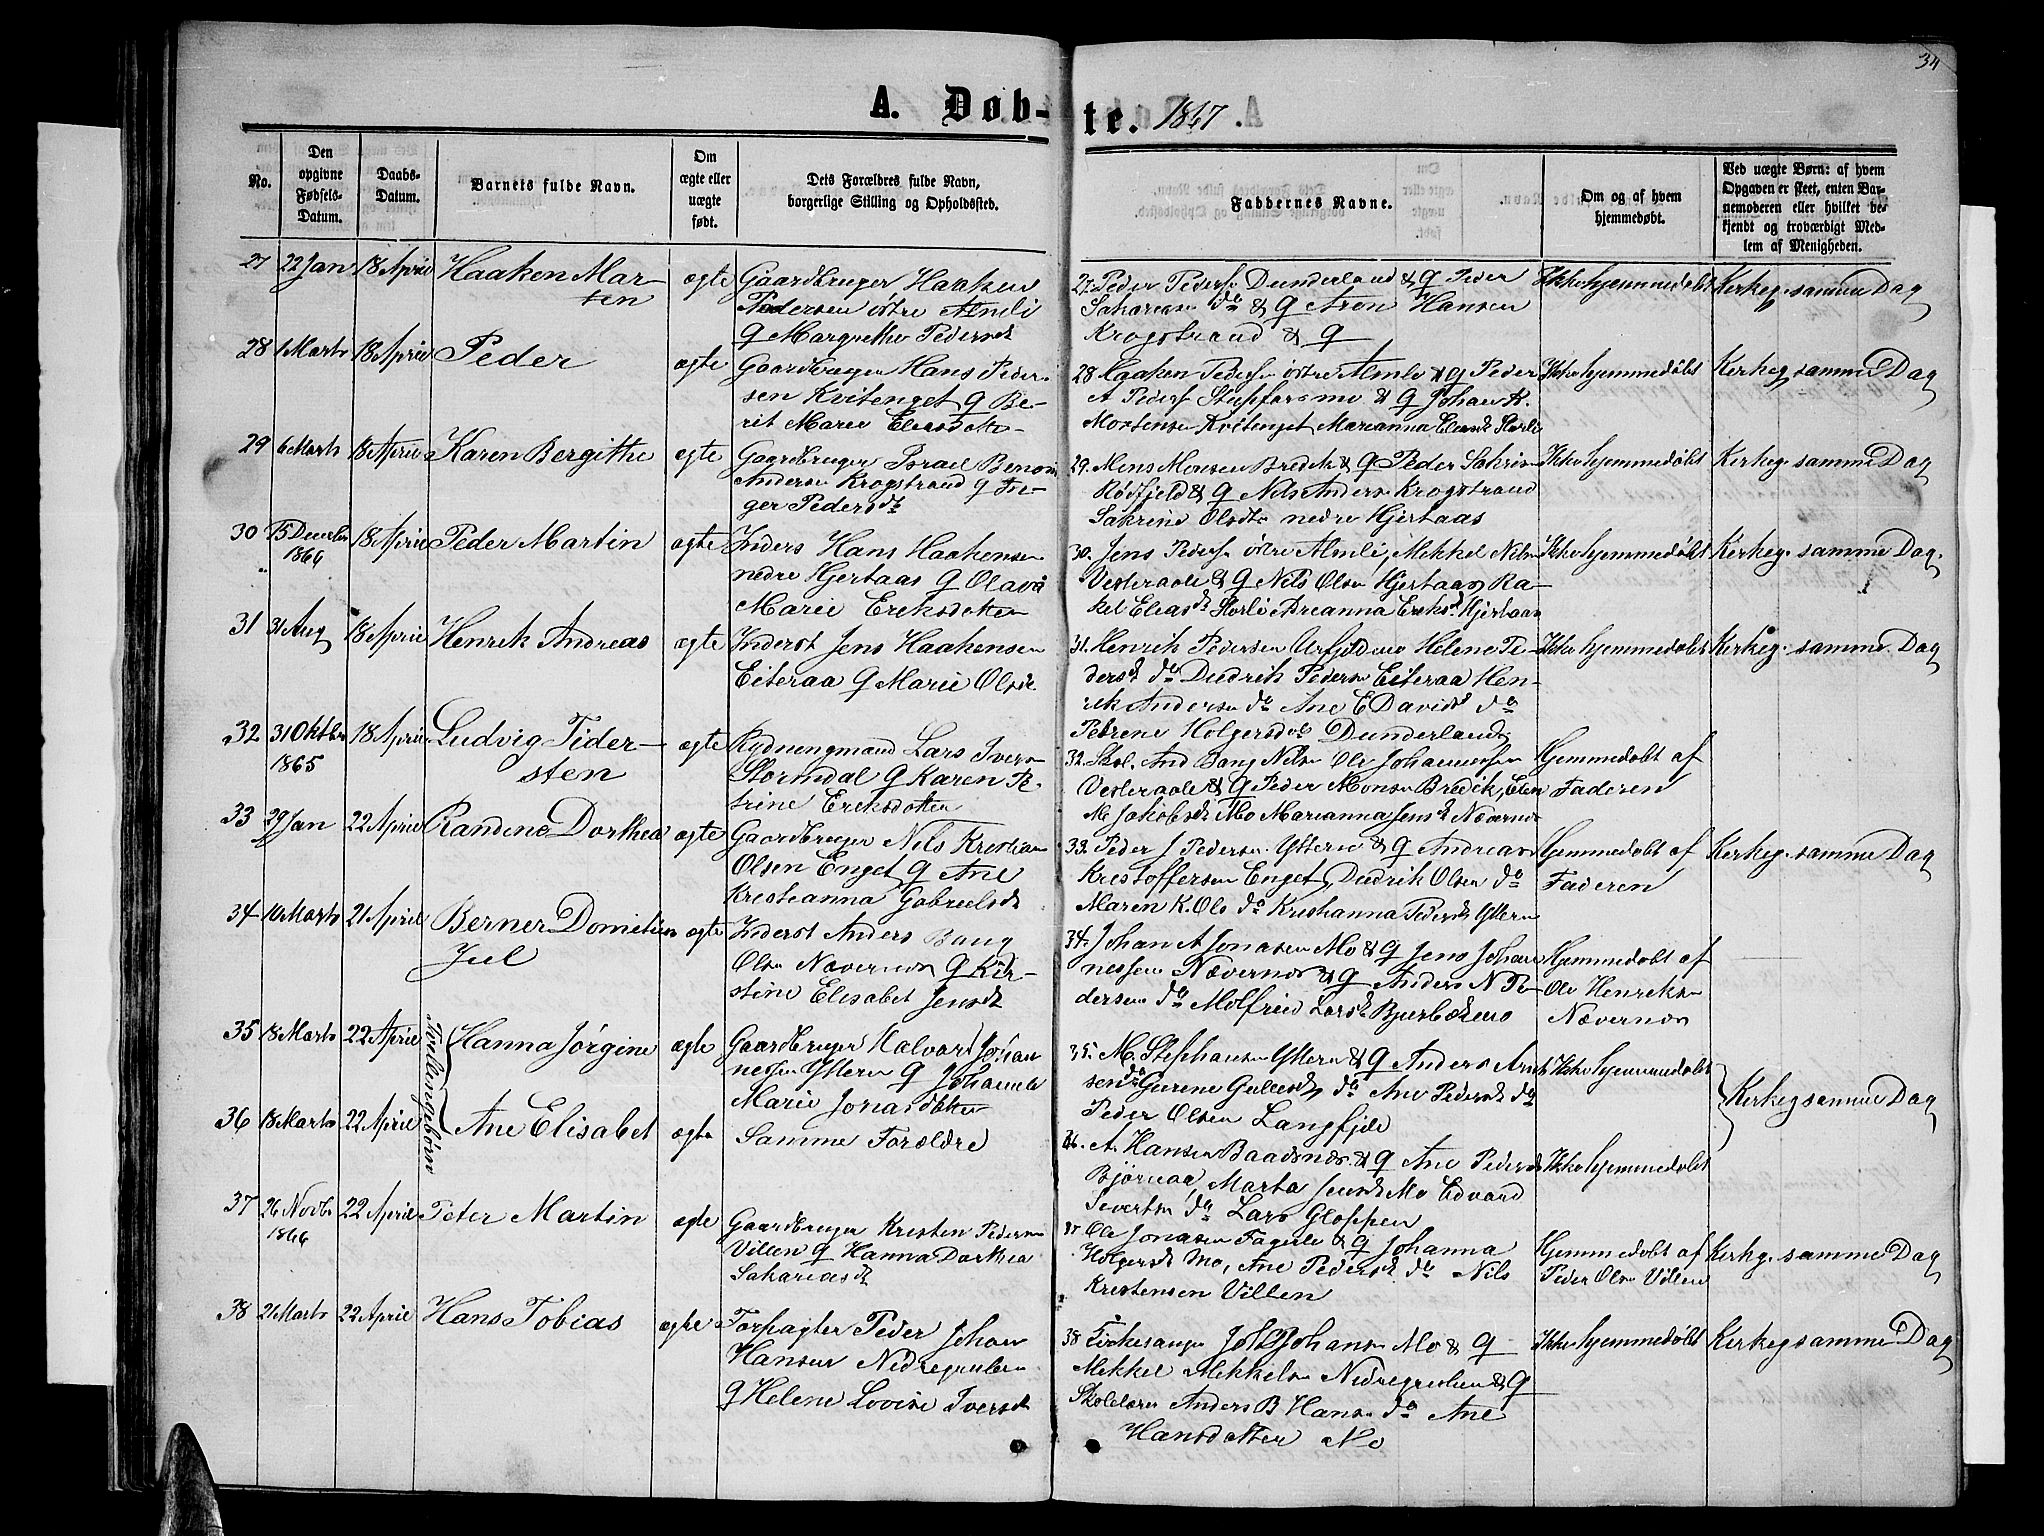 34
A. Døb-te. 1867
No.
Den opgivne Fødsels-Datum.
Daabs-Datum.
Barnets fulde Navn.
Om ægte eller uægte født.
Dets Forældres fulde Navn, borgerlige Stilling og Opholdssted.
Faddernes Navne.
Om og af hvem hjemmedøbt.
Ved uægte Børn: af hvem Opgaven er skeet, enten Barnemoderen eller hvilket bekjendt og troværdigt Medlem af Menigheden.
27 22 Jan 18 April Haaken Mar-
ten
ægte Gaardbruger Haaken
Pedersen østre Almli
& Margrethe Pedersdt
27. Peder Peders Dunderland & & Peder
Sakariasen do & & Aron Hansen
Krogstrand & &
Ikke hjemmedøbt Kirkeg. samme Dag
28 1 Marts 18 April Peder ægte Gaardbruger Hans Peder-
sen Kvitenget & Be-
rit Marie Eliasdatter
28 Haaken Peders østre Almli & & Peder
A Peders Stupforsmo & & Johan K.
Mortensen Kvitenget Marianna Eliasdt Storli
Ikke hjemmedøbt Kirkeg samme Dag
29 6 Marts 18 April Karen Bergithe ægte Gaardbruger Israel Benoni
Andersen Krogstrand & In-
ger Pedersdt
29. Mons Monsen Bredek & & Peder Sakris
Rødfjeld & & Nils Anders Krogstrand
Sakrine Olsdt nedre Hjertaas
Ikke hjemmedøbt Kirkeg. samme Dag
30 15 December 1866 18 April Peder Martin ægte Inders Hans Haakensen
nedre Hjertaas & Olava
Marie Eriksdatter
30. Jens Peders østre Almli, Mekkel Nils
Vesteraali & & Nils Olsen Hjertaas Ra-
kel Eliasdt Storli Arianna Eriksdt Hjertaas
Ikke hjemmedøbt Kirkeg. samme Dag.
31 31 Aug 18 April Henrik Andreas ægte Inderst Jens Haakensen
Eiteraa & Marie Olsdt
31. Henrik Pedersen Urfjeldmo Helene Pe-
dersdt do Dedrik Peders Eiteraa Hen-
rik Andersen do Ane E Davidsdt do
Petrene Holgersdt Dunderland
Ikke hjemmedøbt Kirkeg. samme Dag
32 31 Oktber 1865 18 April Ludvig Tider-
sten
ægte Rydningmand Lars Ivers
Stormdal & Karen Pe-
trine Eriksdatter
32. Skol. And Bang Nilsen Ole Johannessen
Vesteraali & & Peder Monsen Bredik, Elen
M. Jakobsdt Mo Marianna Jensdt Nævernes
Hjemmedøbt af
Faderen
33 29 Jan 22 April Randine Dorthea ægte Gaardbruger Nils Kristian
Olsen Enget & Ane
Kristianna Gabrielsdt
33. Peder J Pedersen Yttern & & Andreas
Kristoffersen Enget, Dedrik Olsen do
Maren K. Ols do Kristianna Pedersdt Yttern
Hjemmedøbt af
Faderen
Kirkeg. samme Dag
34 10 Marts 21 April Berner Domitius
Juel
ægte Inderst Anders Bang
Olsen Nævernes & Kir-
stine Elisabet Jensdt
34. Johan A Jonasen Mo & & Jens Johan-
nessen Nævernes & & Anders N Pe-
dersen do Molfried Larsdt Bjerbekmo
Hjemmedøbt af
Ole Henriksen
Nævernes
Tvillingebørn
35 18 Marts 22 April Hanna Jørgine ægte Gaardbruger Halvard Johan-
nessen Yttern & Johanna
Marie Jonasdatter
35. M. Stephansen Yttern & & Anders Arnt-
sen do Gurene Gullesdt do Ane Pedersdt do
Peder Olsen Langfjeld
Ikke hjemmedøbt
Kirkeg samme Dag
36 18 Marts 22 April Ane Elisabet ægte Samme Forældre
36. A. Hansen Baadsnes & & Ane Pedersdt
Bjørnaa Marta Jensdt Mo Edvard
Sivertsen do Lars Gloppen
Ikke hjemmedøbt
37 26 Novbr 1866 22 April Peter Martin ægte Gaardbruger Kristen Peders
Villen & Hanna Dorthea
Sakariasdt
37 Ole Jonasen Fagerli & & Johanna
Holgersdt Mo, Ane Pedersdt do Nils
Kristensen Villen
Hjemmedøbt af
Peder Olsen Villen
Kirkeg. samme Dag
38 21 Marts 22 April Hans Tobias ægte Forpagter Peder Johan
Hansen Nedregruben
& Helene Lovise Iversdt
38 Kirkesanger Joh Johans Mo & &
Mekkel Mekkelsen Nedregruben & &
Skolelærer Anders B Hans do Ane
Hansdatter Mo
Ikke hjemmedøbt Kirkeg samme Dag